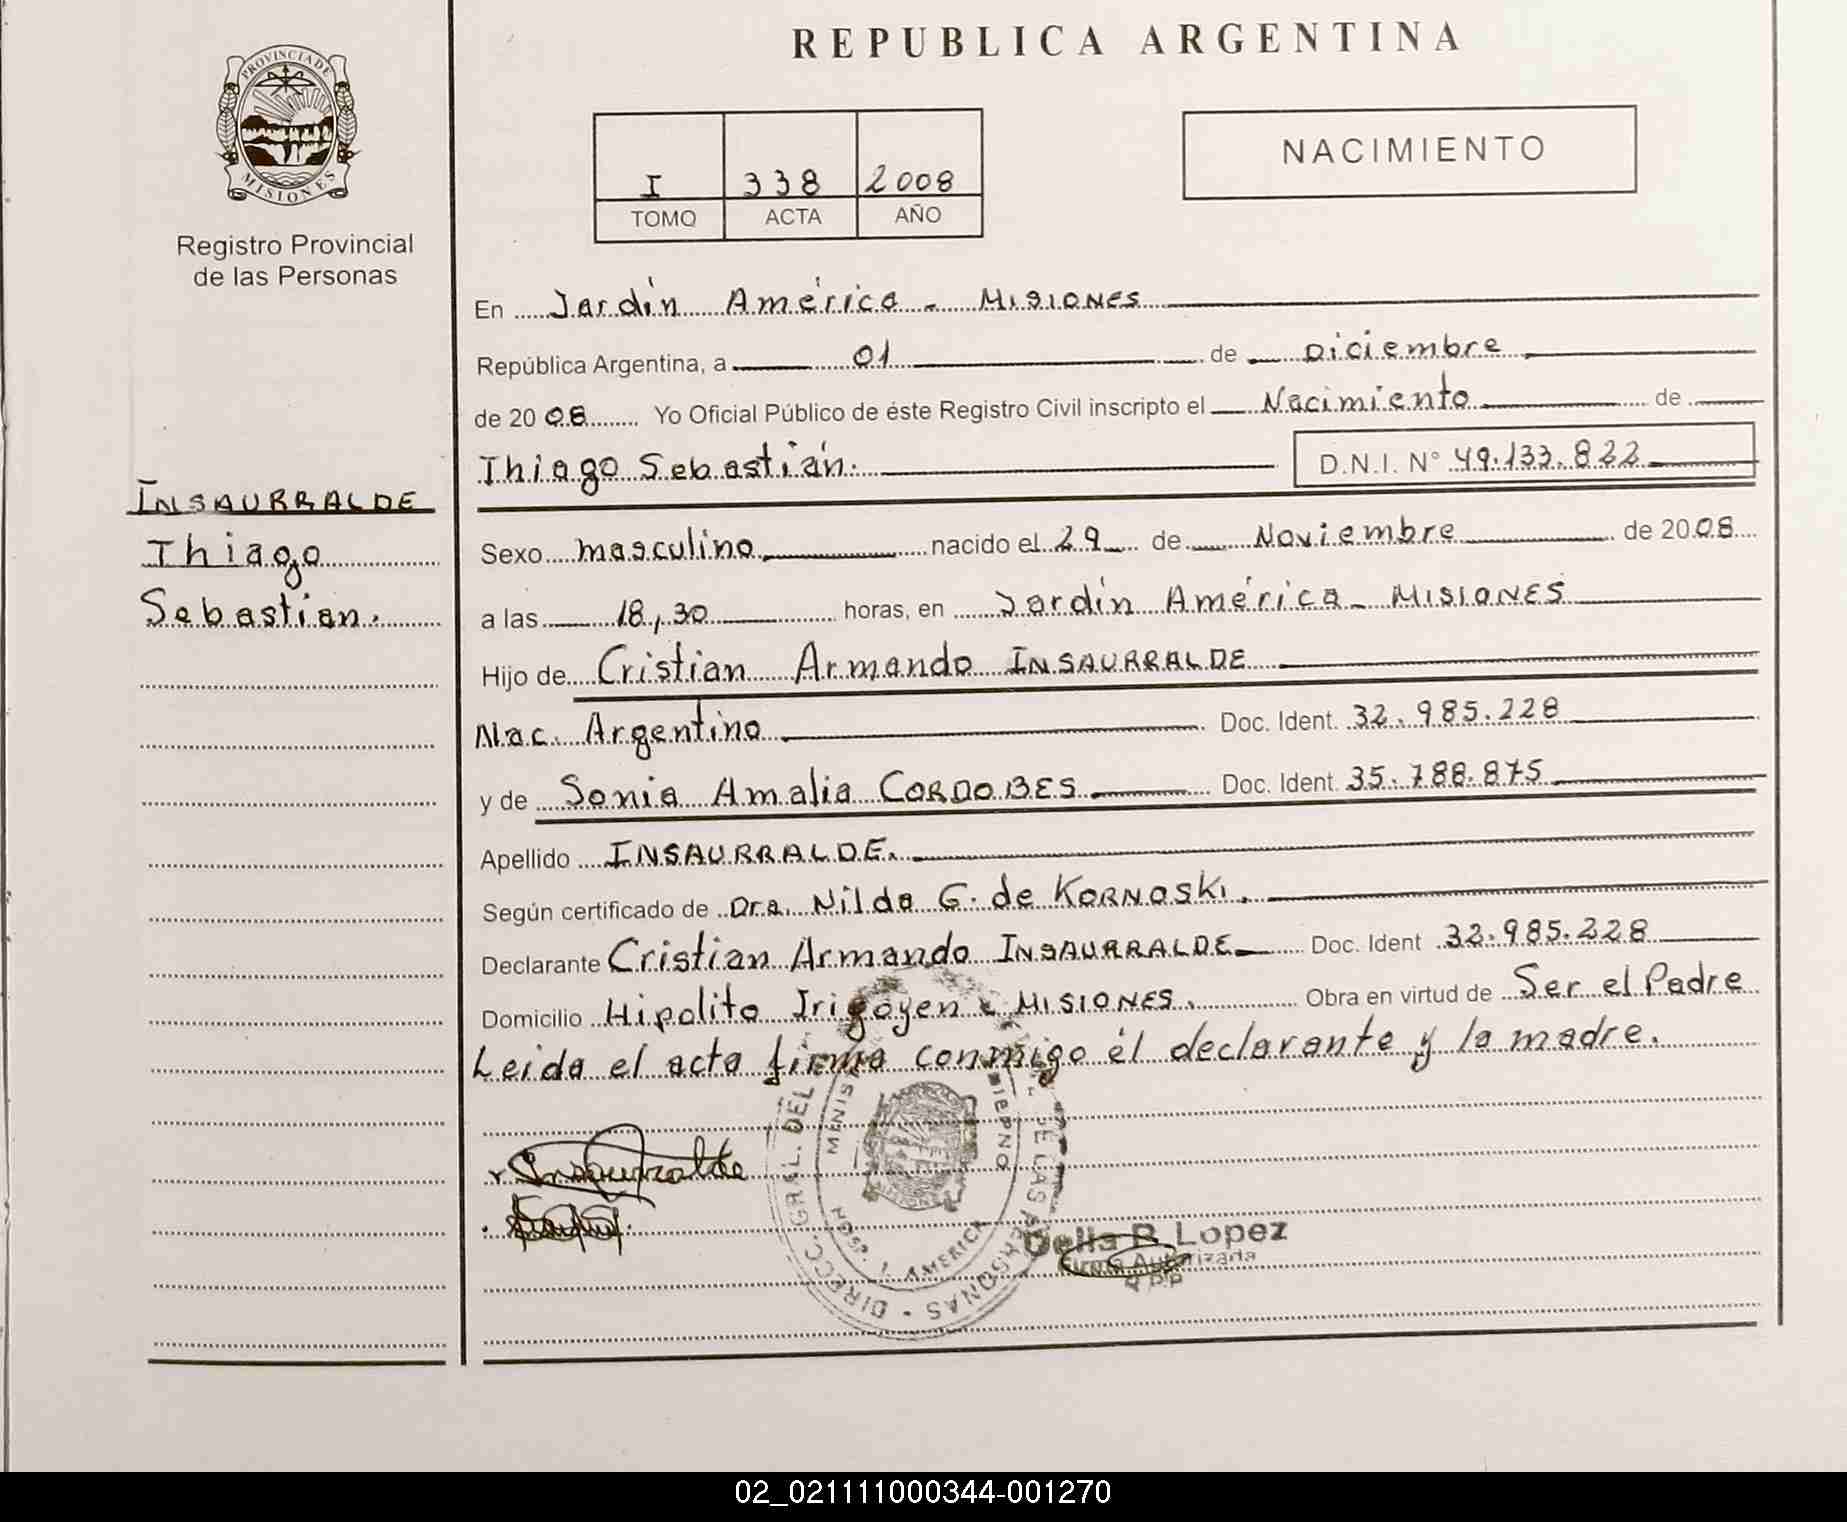 REPUBLICA ARGENTINA
PROVINCIA DE
MISIONES
Registro Provincial
de las Personas
I 338 2008
TOMO ACTA AÑO
NACIMIENTO
En Jardín América - MISIONES
República Argentina, a 01 de Diciembre
de 2008 Yo Oficial Público de éste Registro Civil inscripto el Nacimiento de
Thiago Sebastián. D.N.I. N° 49.133.822
INSAURRALDE
Thiago
Sebastián.
Sexo masculino nacido el 29 de Noviembre de 2008
a las 18,30 horas, en Jardín América - MISIONES
Hijo de Cristian Armando INSAURRALDE
Nac. Argentino Doc. Ident. 32.985.228
y de Sonia Amalia CORDOBES Doc. Ident. 35.788.875
Apellido INSAURRALDE.
Según certificado de Dra. Nilda G. de KORNOSKI.
Declarante Cristian Armando INSAURRALDE Doc. Ident 32.985.228
Domicilio Hipolito Irigoyen - MISIONES. Obra en virtud de Ser el Padre
Leida el acta firma conmigo él declarante y la madre.
Insaurralde
DIRECC. GRAL. DEL DE LAS PERSONAS
HOSP. J. AMERICA
Delia R. Lopez
Firma Autorizada
02_021111000344-001270